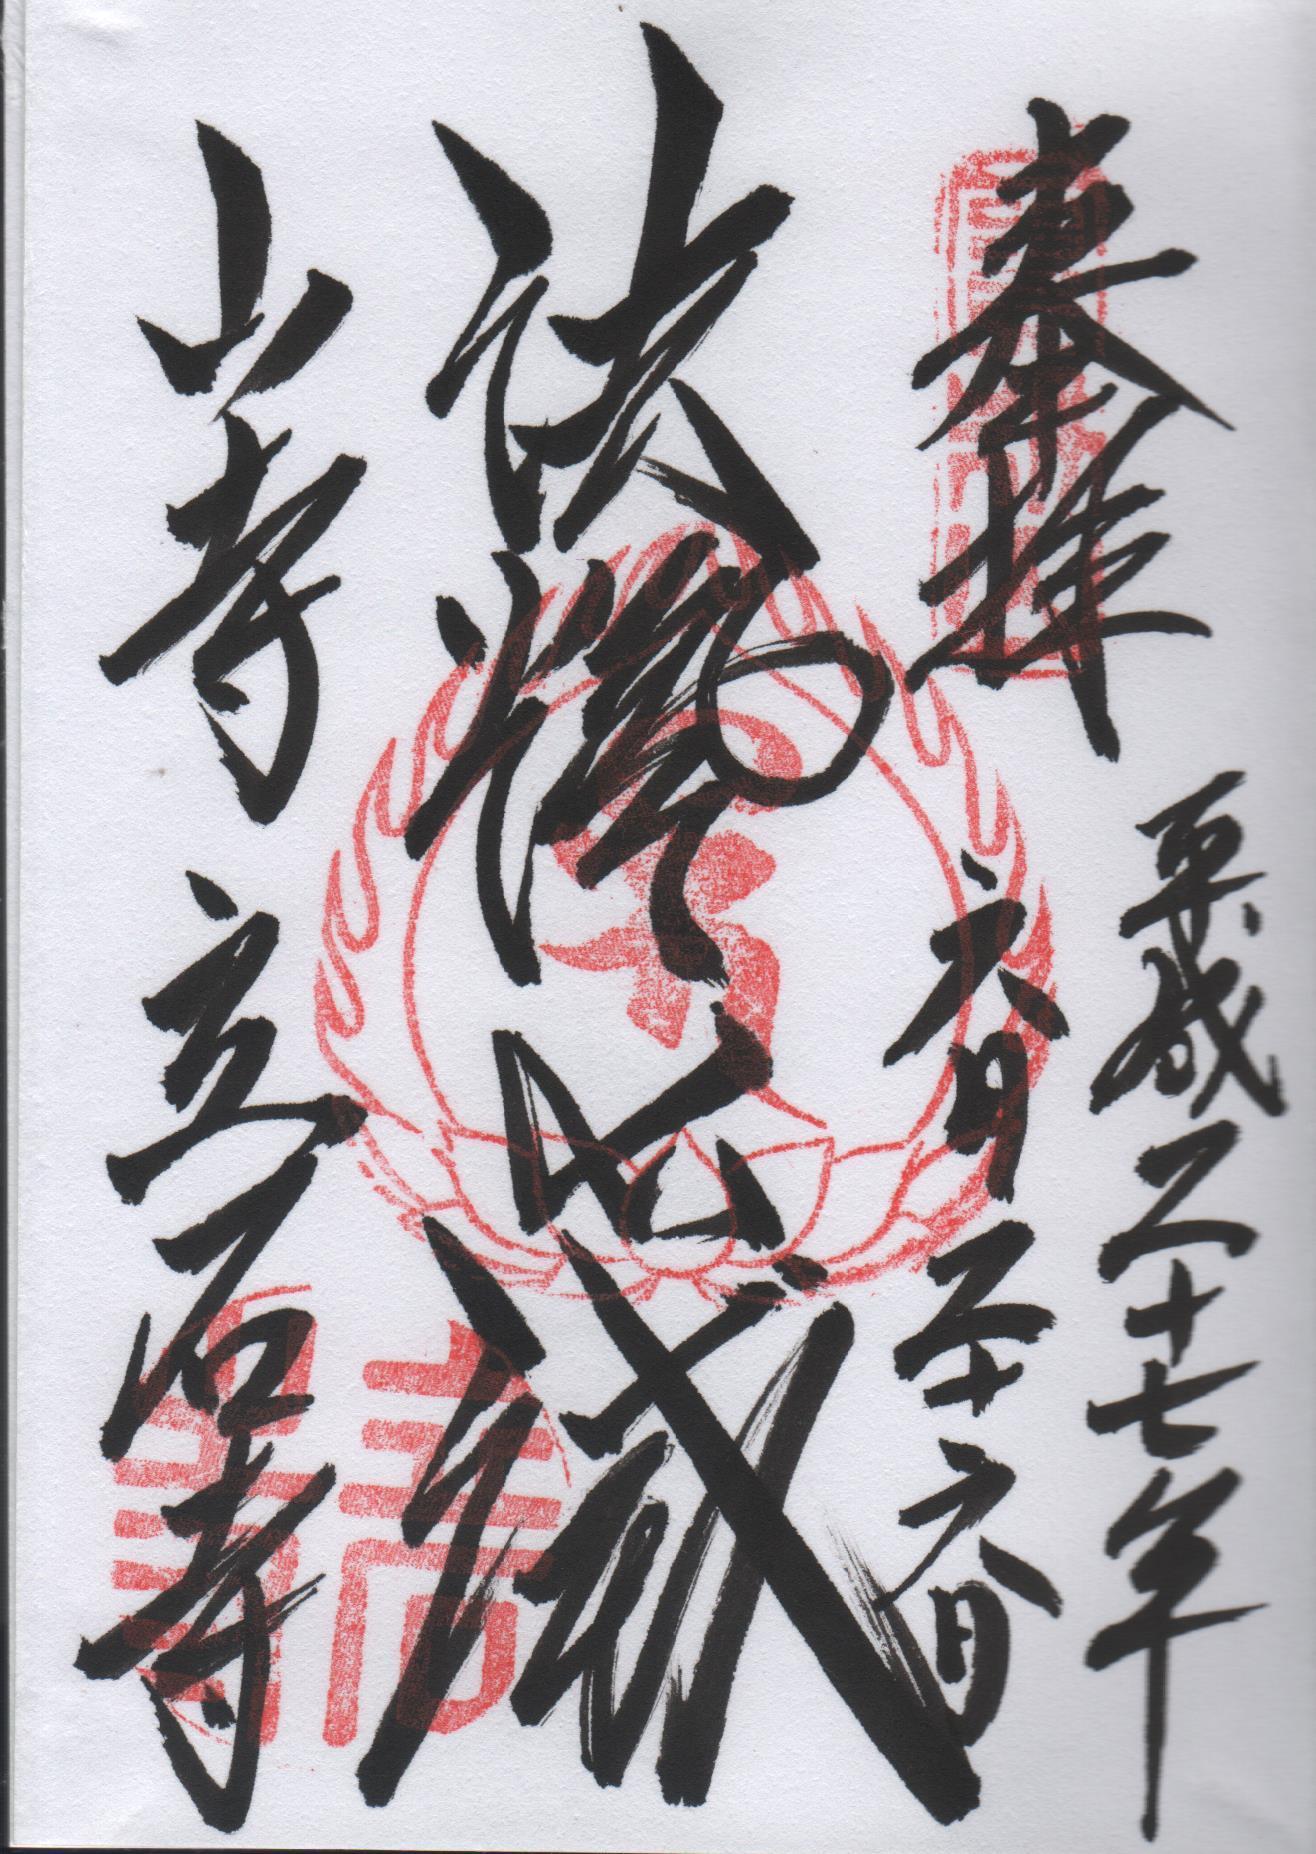 奉拝
平成二十七年
六月二十六日
法燈不滅
山寺 立石寺